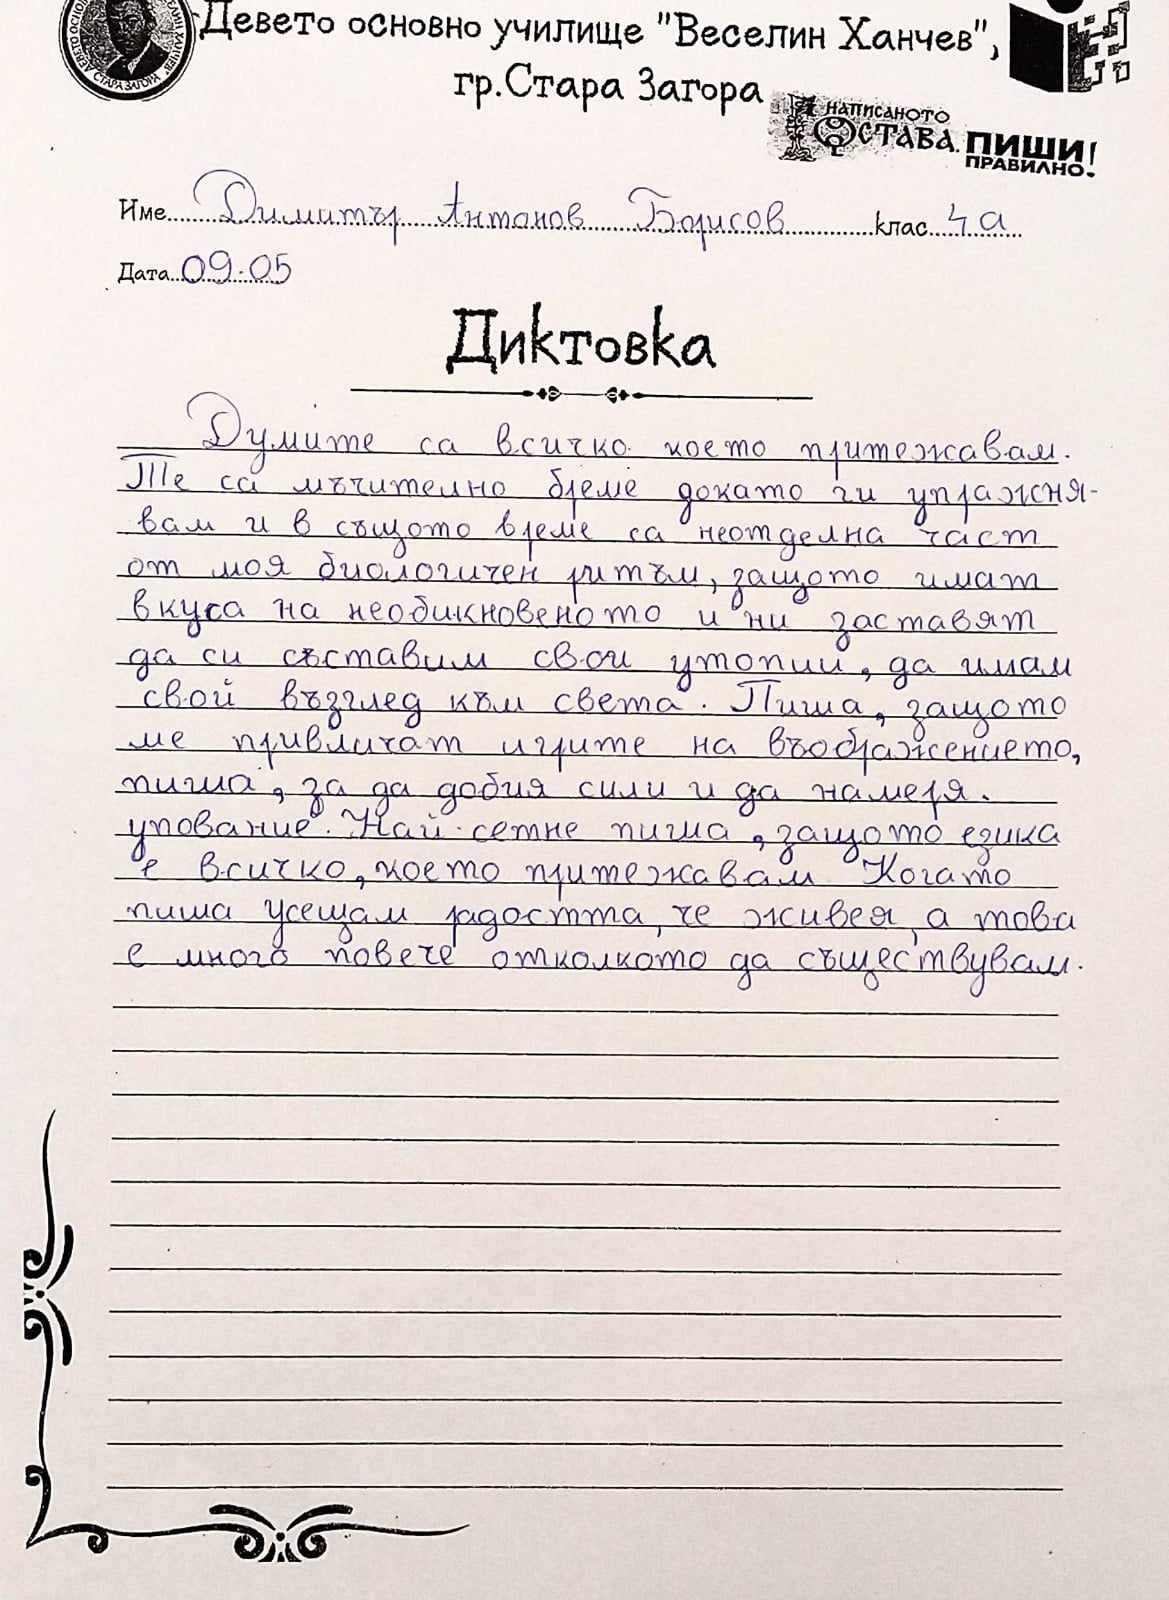 Девето основно училище "Веселин Ханчев",
гр.Стара Загора
НАПИСАНОТО
ОСТАВА.
ПИШИ
ПРАВИЛНО!
СТАРА ЗАГОРА
Име Димитър Антонов Борисов клас 4 а
Дата 09.05
Диктовка
Думите са всичко което притежавам.
Те са мъчително бреме докато ги упражня-
вам и в същото време са неотделна част
от моя биологичен ритъм, защото имат
вкуса на необикновеното и ни заставят
да си съставим свои утопии, да имам
свой възглед към света. Пиша, защото
ме привличат игрите на въображението,
пиша, за да добия сили и да намеря.
упование. Най-сетне пиша, защото езика
е всичко, което притежавам Когато
пиша усещам радостта, че живея, а това
е много повече отколкото да съществувам.